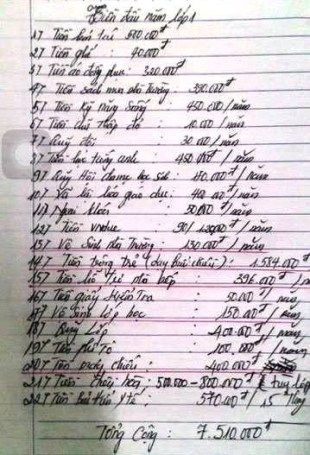 Tiền đầu năm lớp 1
1/ Tiền 500.000đ
2/ Tiền ghế : 40.000đ
3/ Tiền áo đồng phục : 320.000đ
4/ Tiền sách mua nhà trường : 390.000đ
5/ Tiền kỹ năng sống : 450.000 / năm
6/ Tiền chữ thập đỏ : 10.000 / năm
7/ Quỹ đội : 30.000 / năm
8/ tiếng anh : 450.000đ / năm
9/ Quỹ Hội học sinh : 110.000đ / năm
10/ Xã hội hóa giáo dục : / năm
11/ khoản : 50.000đ / năm
12/ Tiền / năm
13/ Vệ Sinh nhà Trường : 130.000đ / năm
14/ Tiền trông trẻ (dạy Buổi chiều) : 1.584.000đ
15/ Tiền bếp : 396.000đ /
16/ Tiền giấy kiểm Tra : 50.000đ / năm
17/ Vệ Sinh lớp học : 150.000đ / năm
18/ Quỹ Lớp : 400.000đ / năm
19/ Tiền Phô Tô : 100.000 / năm
20/ Tiền chiều : 400.000đ
21/ Tiền : 500.000 - 800.000đ ( Tùy lớp
22/ Tiền bảo hiểm Y tế : 570.000đ / 15 Tháng
Tổng Cộng : 7.510.000đ